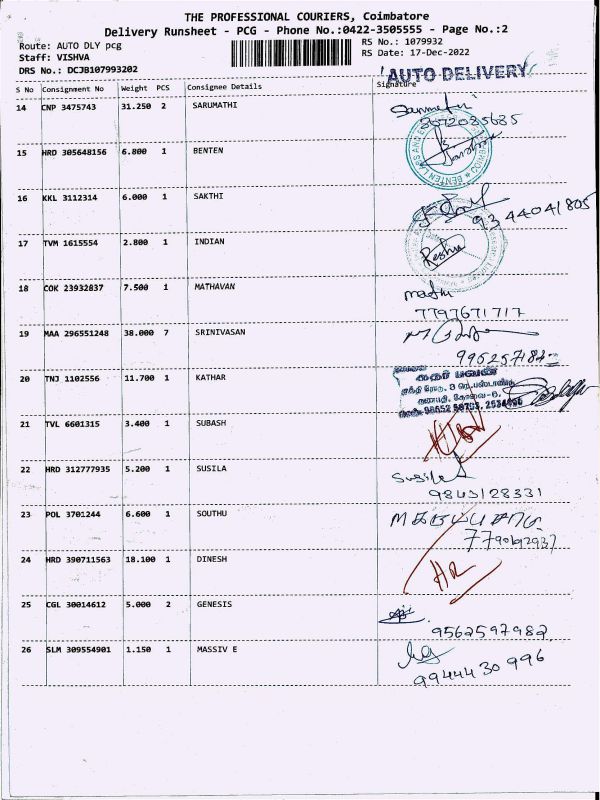 THE PROFESSIONAL COURIERS, Coimbatore
Delivery Runsheet - PCG - Phone No.:0422-3505555 - Page No.:2
Route: AUTO DLY pcg
RS No.: 1079932
Staff: VISHVA
RS Date: 17-Dec-2022
DRS No.: DCJB107993202
AUTO DELIVERY
S No Consignment No Weight PCS Consignee Details Signature
14 CNP 3475743 31.250 2 SARUMATHI
15 HRD 305648156 6.800 1 BENTEN
16 KKL 3112314 6.000 1 SAKTHI
9344041805
17 TVM 1615554 2.800 1 INDIAN
Reshu
18 COK 23932837 7.500 1 MATHAVAN
madhu
7797671717
19 MAA 296551248 38.000 7 SRINIVASAN
20 TNJ 1102556 11.700 1 KATHAR
21 TVL 6601315 3.400 1 SUBASH
22 HRD 312777935 5.200 1 SUSILA
Susila
9843128331
23 POL 3701244 6.600 1 SOUTHU
24 HRD 390711563 18.100 1 DINESH
25 CGL 30014612 5.000 2 GENESIS
9562597982
26 SLM 309554901 1.150 1 MASSIV E
9944430996